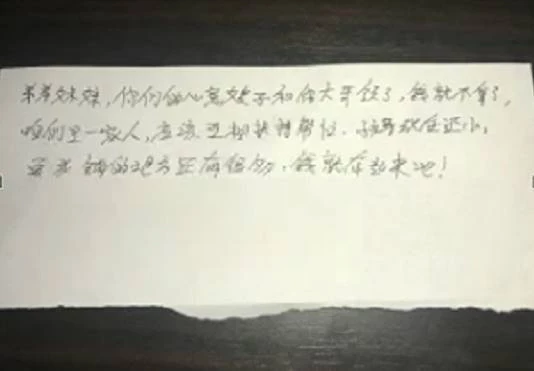 弟弟妹妹，你们的心意嫂子和你大哥领了，钱就不拿了，
咱们是一家人，应该互相扶持帮忙，孩子现在还小，
要花钱的地方还有很多，钱就存起来吧！